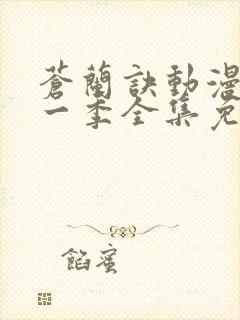 蒼蘭訣動漫
一季全集免
餡蜜